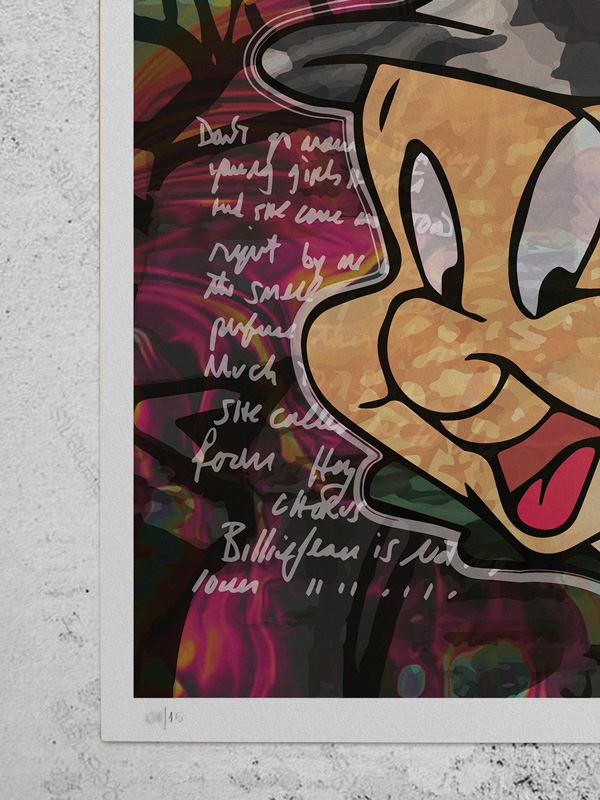 Don't go aroun
young girls
And she came an
right by me
the smell
perfume
Much
She calle
Hey
CHORUS
Billie Jean is not
lover " " . . . .
/15